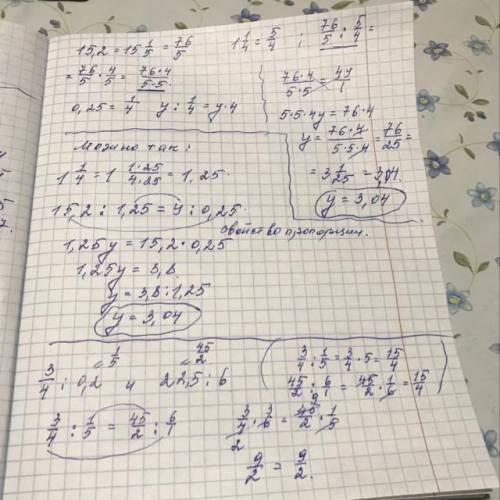 15,2 = 15 1/5 = 76/5    1 1/4 = 5/4 ; 76/5 : 5/4 =
= 76/5 · 4/5 = 76·4/5·5.
0,25 = 1/4    y : 1/4 = y·4
76·4/5·5 = 4y/1
5·5·4y = 76·4
y = 76·4/5·5·4 = 76/25 =
= 3 1/25 = 3,04.
y = 3,04
Можно так:
1 1/4 = 1 1·25/4·25 = 1,25.
15,2 : 1,25 = y : 0,25.
свойство пропорции.
1,25y = 15,2·0,25
1,25y = 3,8
y = 3,8 : 1,25
y = 3,04
= 1/5    = 45/2
3/4 : 0,2 и 22,5 : 6
3/4 : 1/5 = 45/2 : 6/1
3/4 : 1/5 = 3/4 · 5 = 15/4
45/2 : 6/1 = 45/2 · 1/6 = 15/4
3/4 · 6 = 45/2 · 1/5
9/2 = 9/2.